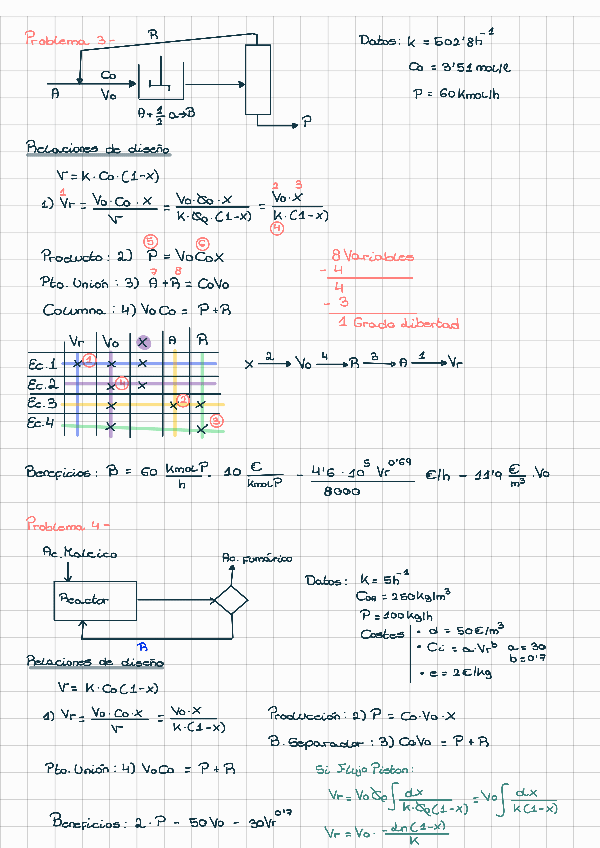 Problema 3-
R
Datos: k = 502'8h⁻¹
Co
Co = 3'51 mol/l
A
Vo
P = 60 Kmol/h
A+1/2 a→B
P
Relaciones de diseño
r = K·Co·(1-x)
1) Vr = Vo·Co·x / r = Vo·Co·x / K·Co·(1-x) = Vo·x / K·(1-x)
1 2 3 4
Producto: 2) P = VoCoX
5 6
Pto. Unión: 3) A+R = CoVo
7 8
Columna: 4) VoCo = P+R
8 Variables
- 4
4
- 3
1 Grado Libertad
Vr Vo X A R
Ec.1 x 1 x x
Ec.2 x 4 x
Ec.3 x x 2 x
Ec.4 x x 3
x →2 Vo →4 R →3 A →1 Vr
Beneficios: B = 60 KmolP/h · 10 €/KmolP - 4'6·10⁵ Vr^0'69 / 8000 €/h - 11'9 €/m³ · Vo
Problema 4-
Ac. Maleico
Ac. Fumárico
Reactor
R
Datos: K = 5h⁻¹
CoA = 250 kg/m³
P = 100 kg/h
Costes
· d = 50 €/m³
· Ci = a·Vr^b a = 30
b = 0'7
· e = 2 €/kg
Relaciones de diseño
r = K·Co(1-x)
1) Vr = Vo·Co·x / r = Vo·X / K(1-x)
Producción: 2) P = Co·Vo·X
B. Separador: 3) CoVo = P+R
Pto. Unión: 4) VoCo = P+R
Si Flujo Piston:
Vr = VoCo ∫ dx / K·Co(1-x) = Vo ∫ dx / K(1-x)
Beneficios: 2·P - 50Vo - 30Vr^0'7
Vr = Vo · -Ln(1-x) / K